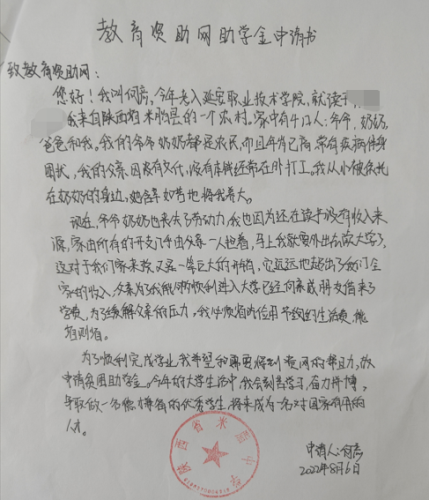 教育资助网助学金申请书
致教育资助网：
您好！我叫何芳，今年考入延安职业技术学院，就读于
我来自陕西省米脂县的一个农村。家中有4口人：爷爷，奶奶，
爸爸和我。我的爷爷奶奶都是农民，而且年龄已高，常有疾病伴身
困扰，我的父亲因没有文化，没有本领经常在外打工。我从小被父托
在奶奶的身边，她含辛如苦地将我养大。
现在，爷爷奶奶也失去劳动力，我也因为还在读书没有收入来
源，家由所有的开支几乎由父亲一人担着，马上我就要外出去读大学了，
这对于我们家来说又是一笔巨大的开销，它远远也超出了我们全
家的收入，父亲为了我能够顺利进入大学已经向亲戚朋友借来了
学费，为了缓解父亲的压力，我
为了顺利完成学业，我希望和需要得到资网的帮且力，故
申请贫困助学金。今年的大学生活中，我会刻苦学习，奋力拼搏。
争取做一名德才兼备的优秀学生，将来成为一名对国家有用的
人才。
陕西省米脂中学
申请人：何芳
2022年8月6日